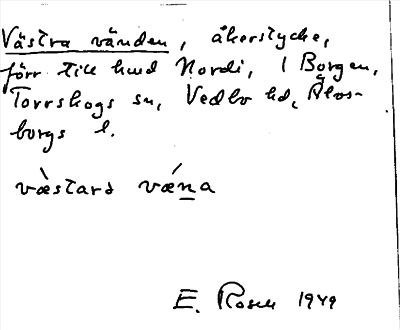 Västra vänden, åkerstycke,
förr till hmd Nordi, i Borgen,
Torrskogs sn, Vedbo hd, Älvs-
borgs l.
væ̀stard vǽna
E. Rosen 1949